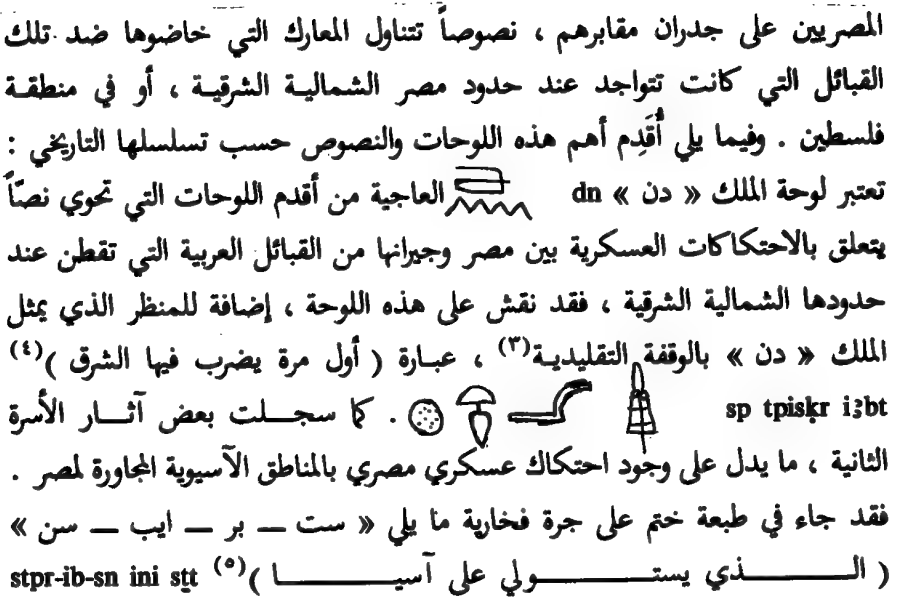 المصريين على جدران مقابرهم ، نصوصاً تتناول المعارك التي خاضوها ضد تلك
القبائل التي كانت تتواجد عند حدود مصر الشمالية الشرقية ، أو في منطقة
فلسطين . وفيما يلي أُقَدِم أهم هذه اللوحات والنصوص حسب تسلسلها التاريخي :
تعتبر لوحة الملك « دن » dn العاجية من أقدم اللوحات التي تحوي نصّاً
يتعلق بالاحتكاكات العسكرية بين مصر وجيرانها من القبائل العربية التي تقطن عند
حدودها الشمالية الشرقية ، فقد نقش على هذه اللوحة ، إضافة للمنظر الذي يمثل
الملك « دن » بالوقفة التقليدية(٣) ، عبارة ( أول مرة يضرب فيها الشرق )(٤)
sp tpisḳr iꜣbt . كما سجلت بعض آثار الأسرة
الثانية ، ما يدل على وجود احتكاك عسكري مصري بالمناطق الآسيوية المجاورة لمصر .
فقد جاء في طبعة ختم على جرة فخارية ما يلي « ست ــ بر ــ ايب ــ سن »
( الذي يستولي على آسيا )(٥) stpr-ib-sn ini sṯt